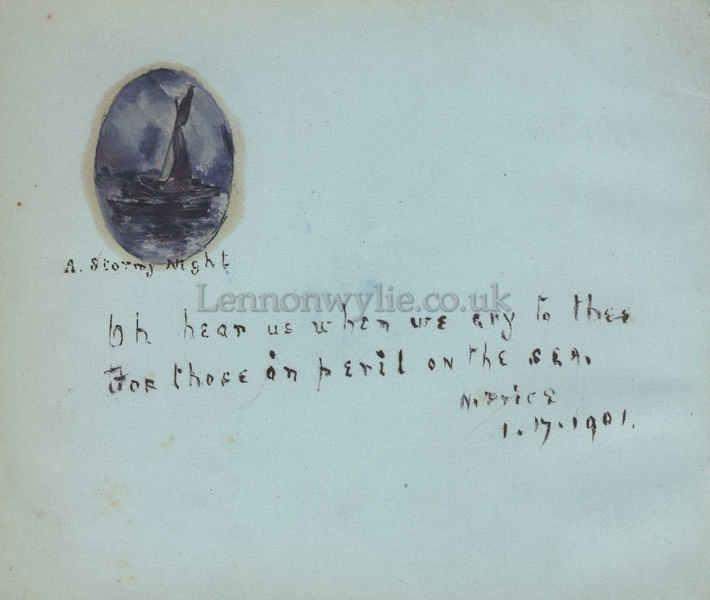 A. Stormy Night
Lennonwylie.co.uk
Oh hear us when we cry to thee
For those in peril on the sea.
N. Price
1.17.1901.